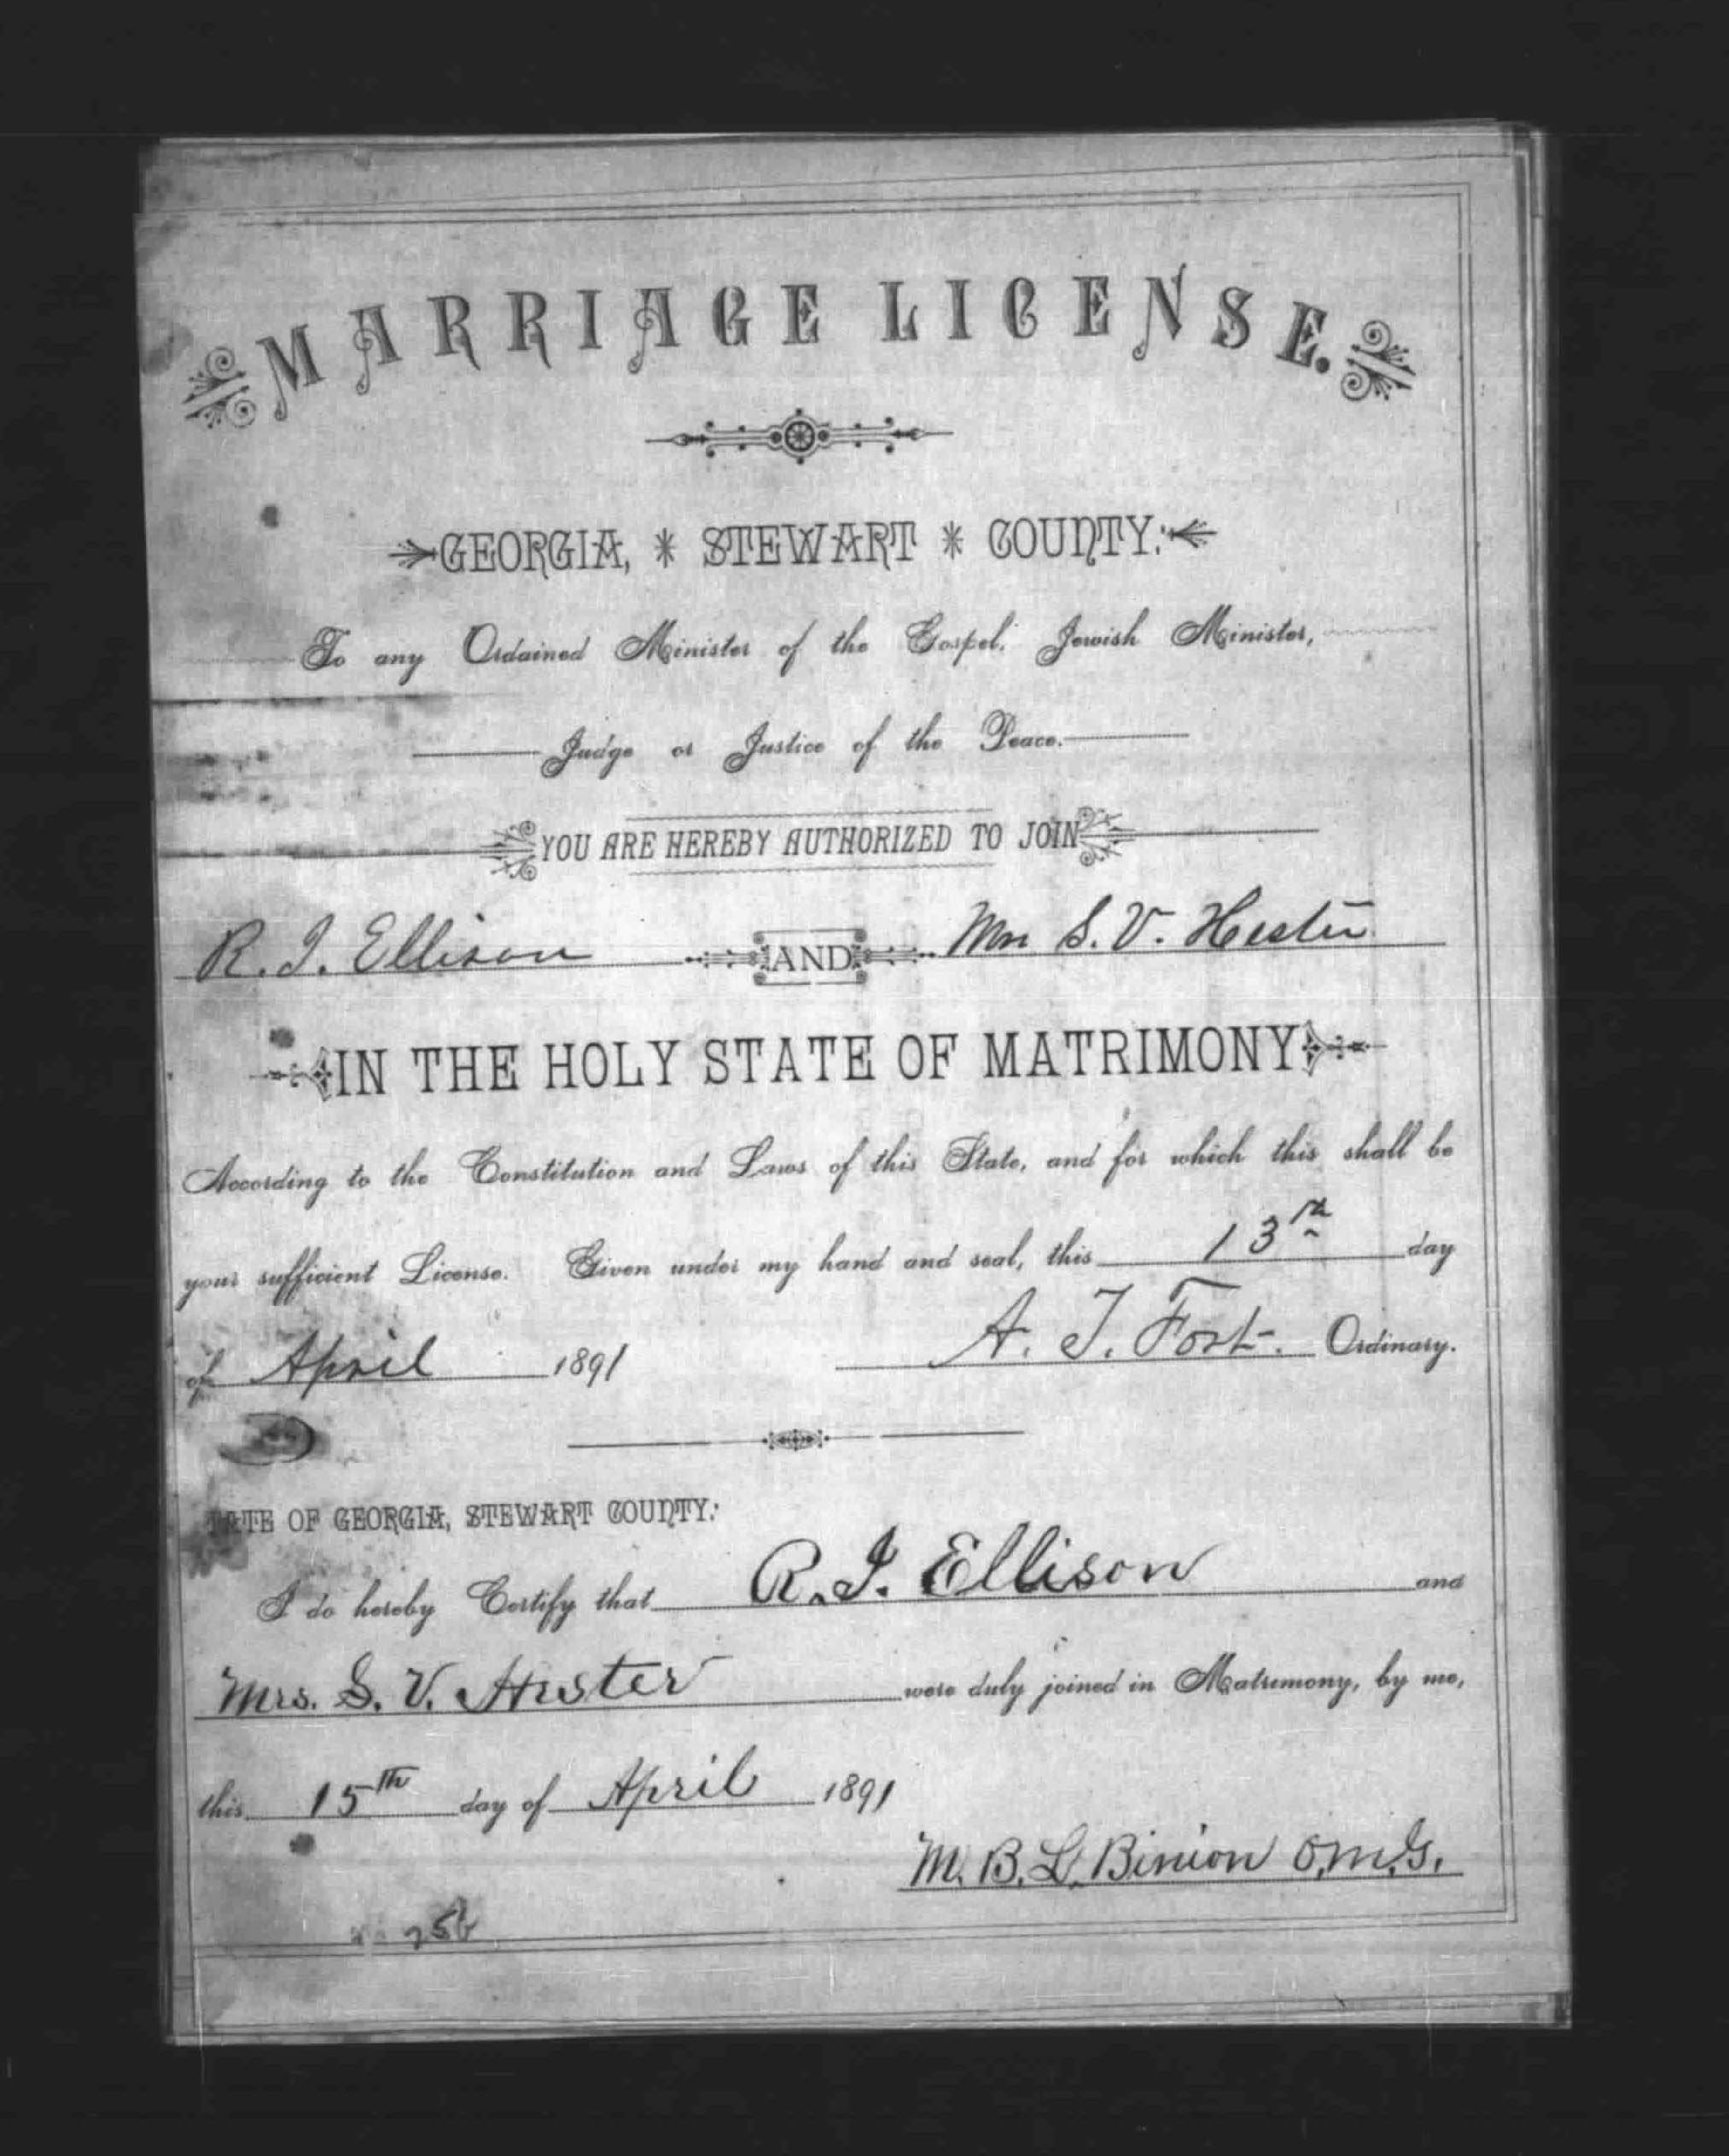 MARRIAGE LICENSE.
GEORGIA, * STEWART * COUNTY:
To any Ordained Minister of the Gospel, Jewish Minister,
Judge or Justice of the Peace.
YOU ARE HEREBY AUTHORIZED TO JOIN
R. J. Ellison AND Mrs S. V. Hester
IN THE HOLY STATE OF MATRIMONY
According to the Constitution and Laws of this State, and for which this shall be
your sufficient License. Given under my hand and seal, this 13th day
of April 1891 A. T. Fort. Ordinary.
TATE OF GEORGIA, STEWART COUNTY:
I do hereby Certify that R. J. Ellison and
Mrs. S. V. Hester were duly joined in Matrimony, by me,
this 15th day of April 1891
M. B. L. Binion O.M.G.